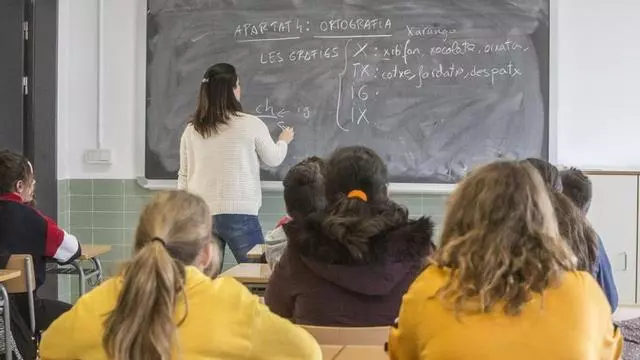 APARTAT 4: ORTOGRAFIA
Xarango
LES GRAFIES
X: xifon, xocolata, oixata,
TX: cotxe, fardatxo, despatx
IG:
IX:
ch ig